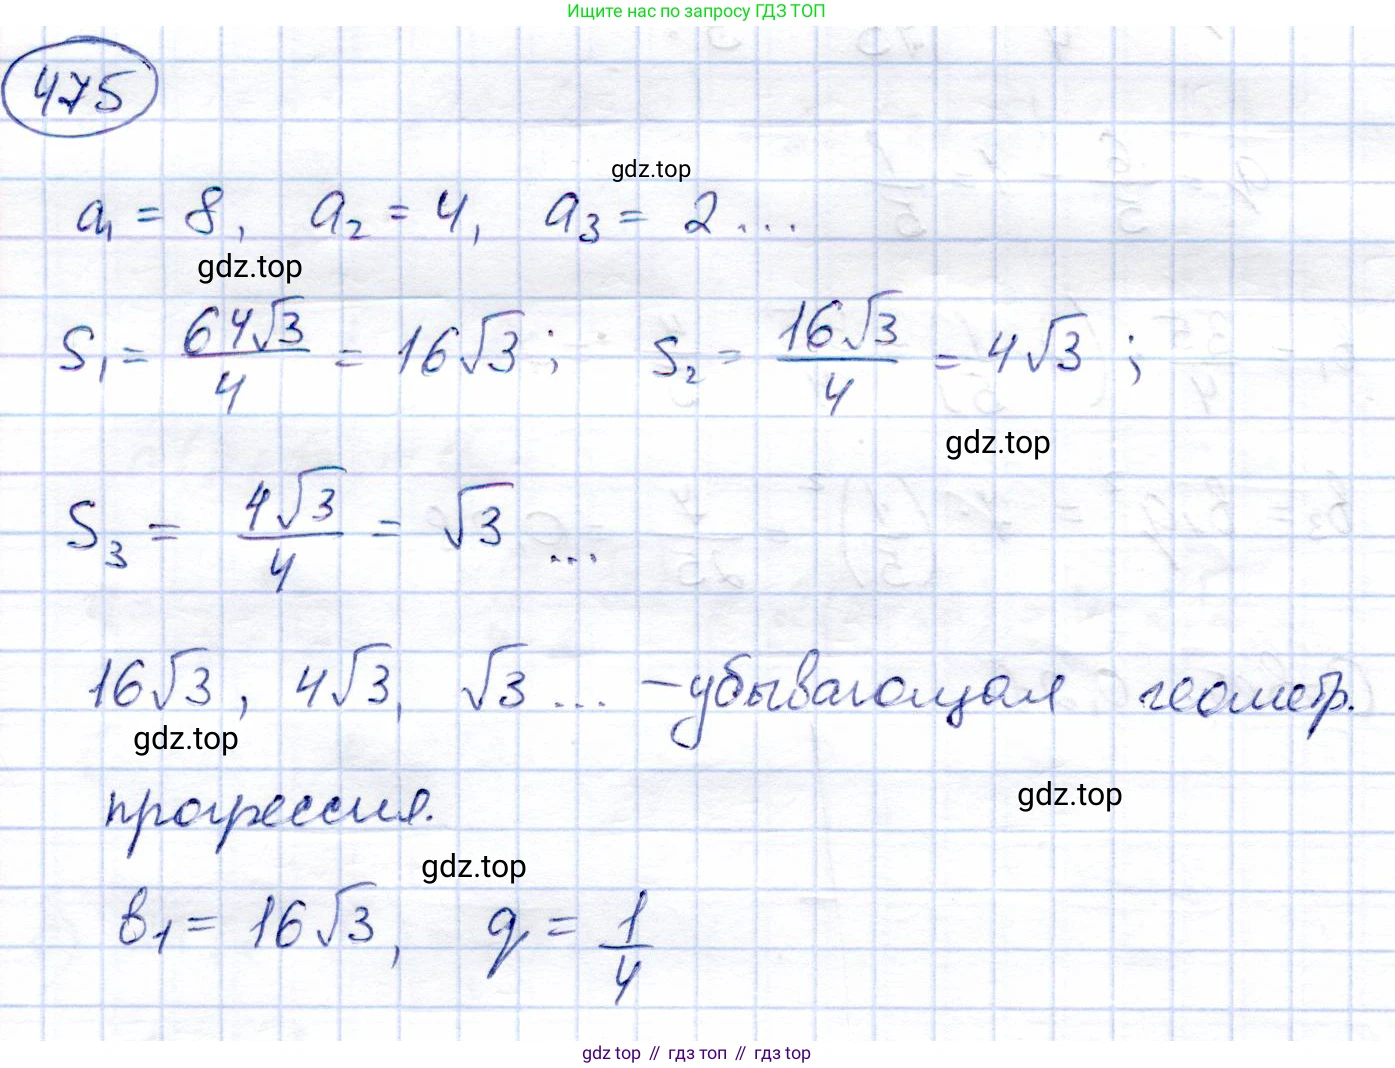 Ищите нас по запросу ГДЗ ТОП
475
gdz.top
a₁ = 8, a₂ = 4, a₃ = 2 ...
gdz.top
S₁ = 64√3/4 = 16√3; S₂ = 16√3/4 = 4√3;
gdz.top
S₃ = 4√3/4 = √3 ...
16√3, 4√3, √3 ... – убывающая геометр.
gdz.top
прогрессия.
gdz.top
gdz.top
в₁ = 16√3, q = 1/4
gdz top // гдз топ // гдз top